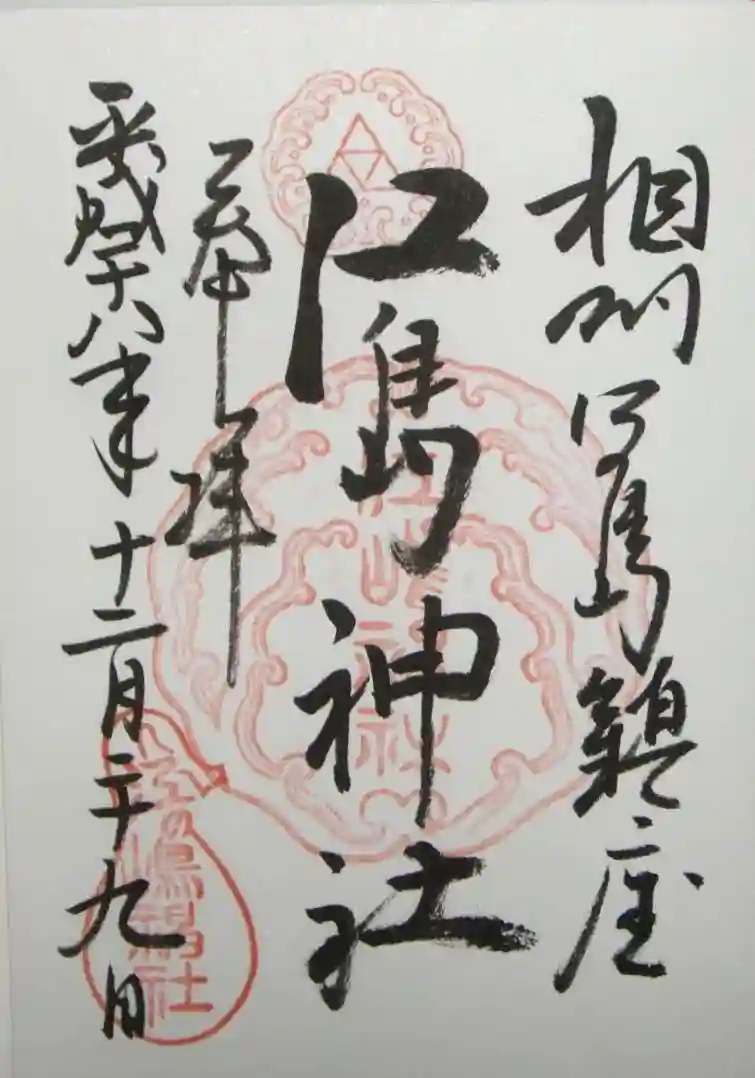 相州江島鎮座
江島神社
奉拝
平成十八年十二月二十九日
江島神社